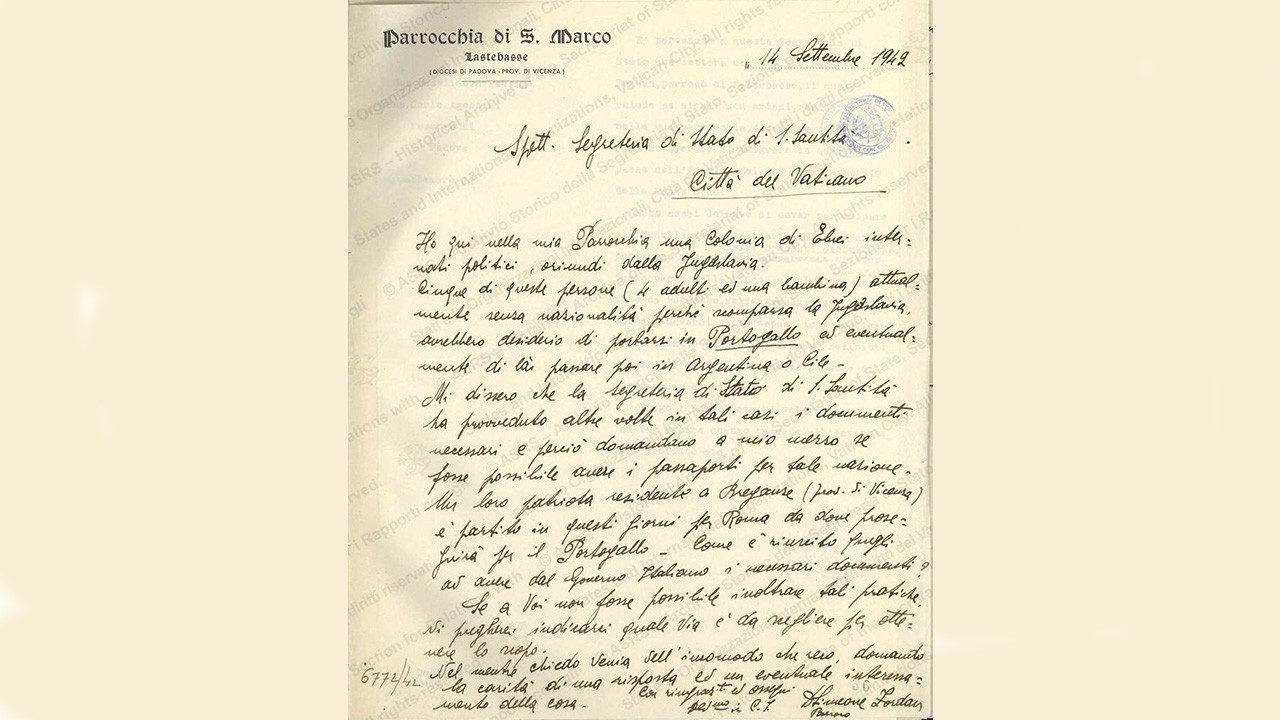 Parrocchia di S. Marco
Lastebasse
(DIOCESI DI PADOVA - PROV. DI VICENZA)
14 Settembre 1942
Spett. Segreteria di Stato di S. Santità
Città del Vaticano
Ho qui nella mia Parrocchia una Colonia di Ebrei inter=
nati politici, oriundi dalla Jugoslavia.
Cinque di queste persone (4 adulti ed una bambina) attual=
mente senza nazionalità perché scomparsa la Jugoslavia,
avrebbero desiderio di portarsi in Portogallo ed eventual=
mente di là passare poi in Argentina o Cile -
Mi dissero che la Segreteria di Stato di S. Santità
ha provveduto altre volte in tali casi i documenti
necessari e perciò domandano a mio mezzo se
fosse possibile avere i passaporti per tale nazione -
Un loro patriota residente a Breganze (prov. di Vicenza)
è partito in questi giorni per Roma da dove prose=
guirà per il Portogallo - Come è riuscito quegli
ad avere dal Governo Italiano i necessari documenti?
Se a Voi non fosse possibile inoltrare tali pratiche,
Vi pregherei indicarci quale via è da scegliere per otte=
nere lo scopo.
Nel mentre chiedo venia dell'incomodo che reco, domando
la carità di una risposta ed un eventuale interessa=
mento della cosa.
Con ringraz.ti ed ossequi
Dev.mo in C. J.
D Simeone Zordan
Parroco
6772/42